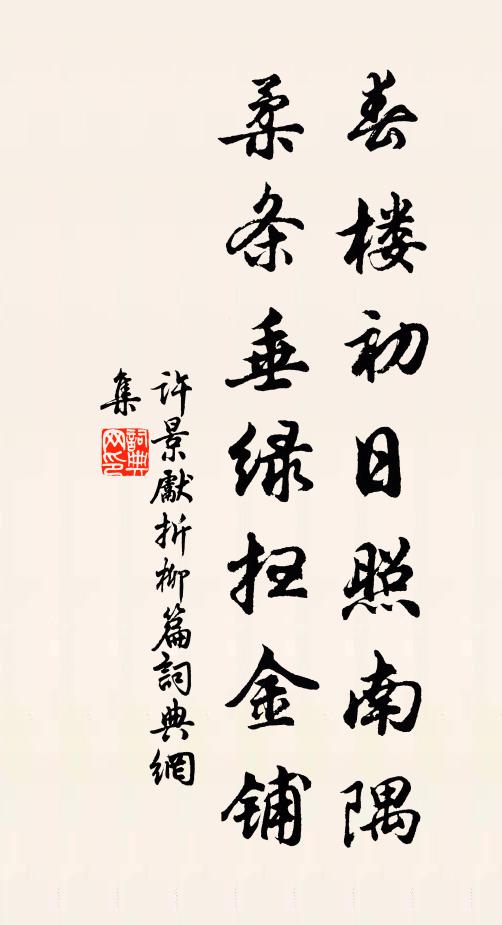 春楼初日照南隅
柔条垂绿扫金铺
許景獻折柳篇詞典網
集
詞典
网印